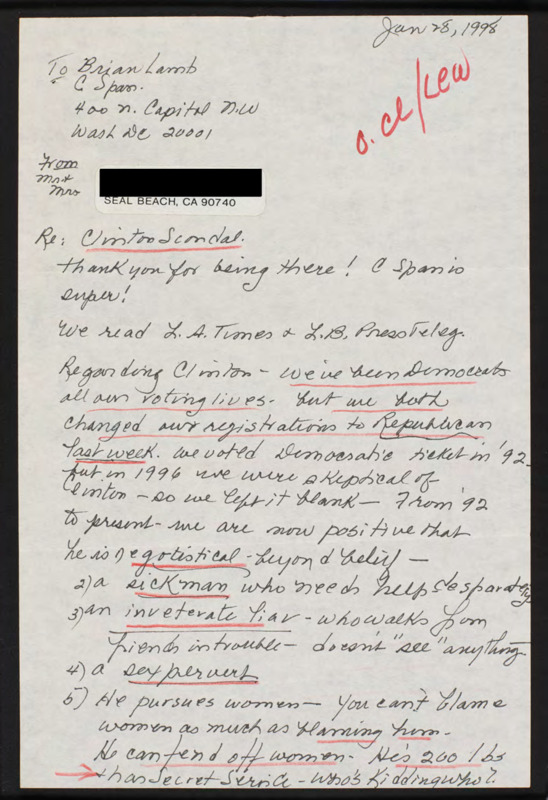 Jan 28, 1998
To Brian Lamb
C Span.
400 N. Capitol N.W
Wash DC 20001
o.ce/LEW
From
Mr +
Mrs
SEAL BEACH, CA 90740
Re: Clinton Scandal.
Thank you for being there! C Span is
super!
We read L.A. Times & L.B. Press Teleg.
Regarding Clinton - we've been Democrats
all our voting lives. but we both
changed our registrations to Republican
last week. we voted Democratic ticket in '92
but in 1996 we were skeptical of
Clinton - so we left it blank - From '92
to present - we are now positive that
he is 1) egotistical - beyond belief -
2) a sick man who needs help desparately
3) an inveterate liar - who walks from
friends in trouble - doesn't "see" anything
4) a sex pervert
5) He pursues women - You can't blame
women as much as blaming him.
He can fend off women. He's 200 lbs
+ has Secret Service - who's kidding who?